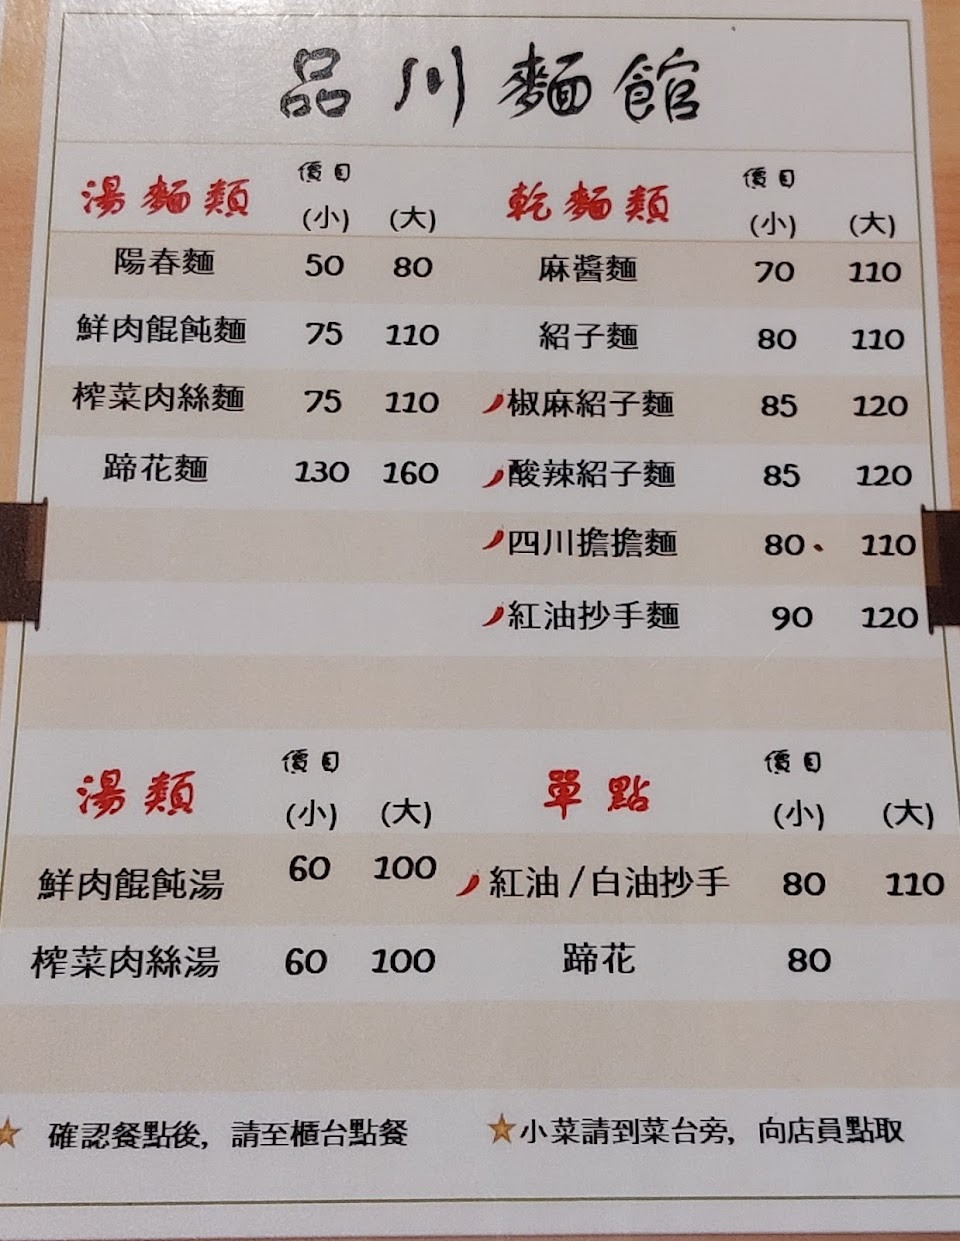 品川麵館
湯麵類 價目 (小) (大)
陽春麵 50 80
鮮肉餛飩麵 75 110
榨菜肉絲麵 75 110
蹄花麵 130 160
乾麵類 價目 (小) (大)
麻醬麵 70 110
紹子麵 80 110
椒麻紹子麵 85 120
酸辣紹子麵 85 120
四川擔擔麵 80 110
紅油抄手麵 90 120
湯類 價目 (小) (大)
鮮肉餛飩湯 60 100
榨菜肉絲湯 60 100
單點 價目 (小) (大)
紅油/白油抄手 80 110
蹄花 80
確認餐點後,請至櫃台點餐
小菜請到菜台旁,向店員點取